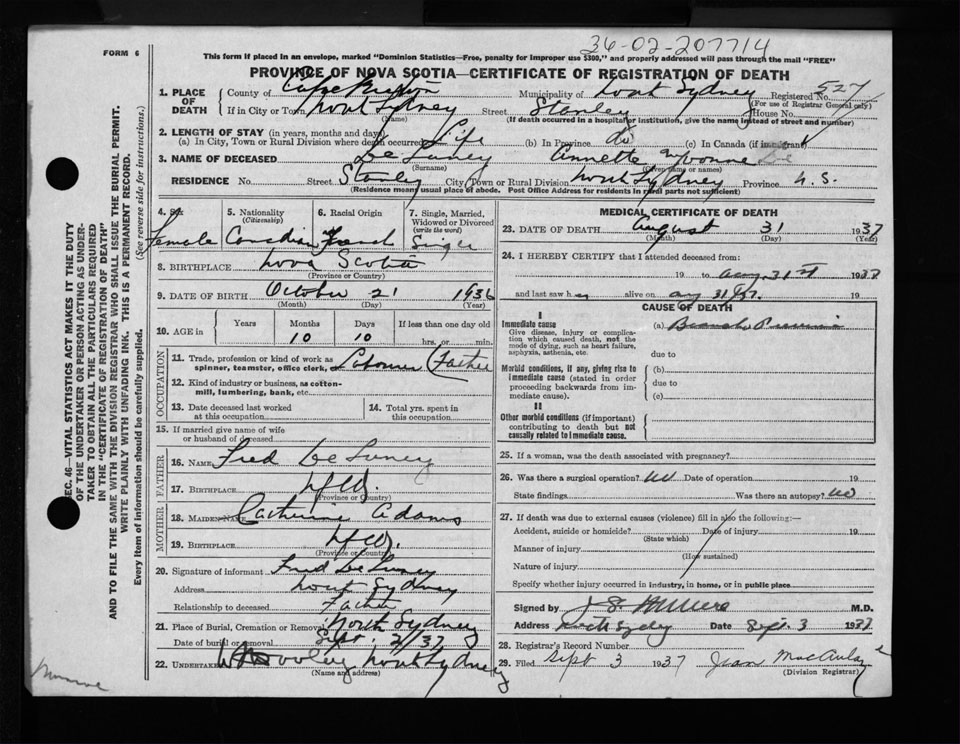 36-02-207714
FORM 6
This form if placed in an envelope, marked "Dominion Statistics—Free, penalty for improper use $300," and properly addressed will pass through the mail "FREE"
PROVINCE OF NOVA SCOTIA—CERTIFICATE OF REGISTRATION OF DEATH
1. PLACE OF DEATH County of Cape Breton Municipality of North Sydney Registered No. 527
(For use of Registrar General only)
If in City or Town North Sydney Street Stanley House No.
(Name) (If death occurred in a hospital or institution, give the name instead of street and number)
2. LENGTH OF STAY (in years, months and days)
(a) In City, Town or Rural Division where death occurred Life (b) In Province do (c) In Canada (if immigrant)
3. NAME OF DECEASED De Luney Annette Yvonne
(Surname) (Given name or names)
RESIDENCE No. Street Stanley City, Town or Rural Division North Sydney Province N. S.
(Residence means usual place of abode. Post Office Address for residents in rural parts not sufficient)
4. Sex Female
5. Nationality (Citizenship) Canadian
6. Racial Origin French
7. Single, Married, Widowed or Divorced (write the word) Single
8. BIRTHPLACE Nova Scotia
(Province or Country)
9. DATE OF BIRTH October 21 1936
(Month) (Day) (Year)
10. AGE in Years Months 10 Days 10 If less than one day old hrs. or min.
OCCUPATION
11. Trade, profession or kind of work as spinner, teamster, office clerk, Labourer (Father
12. Kind of industry or business, as cotton-mill, lumbering, bank, etc.
13. Date deceased last worked at this occupation
14. Total yrs. spent in this occupation
15. If married give name of wife or husband of deceased
FATHER
16. NAME Fred De Luney
17. BIRTHPLACE Nfld.
(Province or Country)
MOTHER
18. MAIDEN NAME Catherine Adams
19. BIRTHPLACE Nfld.
(Province or Country)
20. Signature of informant Fred De Luney
Address North Sydney
Relationship to deceased Father
21. Place of Burial, Cremation or Removal North Sydney
Date of burial or removal Sept. 2/37
22. UNDERTAKER North Sydney
(Name and address)
MEDICAL CERTIFICATE OF DEATH
23. DATE OF DEATH August 31 1937
(Month) (Day) (Year)
24. I HEREBY CERTIFY that I attended deceased from:
19 to Aug. 31st 1937
and last saw her alive on Aug 31/37. 19
CAUSE OF DEATH
I
Immediate cause (a)
Give disease, injury or complication which caused death, not the mode of dying, such as heart failure, asphyxia, asthenia, etc.
due to
Morbid conditions, if any, giving rise to immediate cause (stated in order proceeding backwards from immediate cause).
(b)
due to
(c)
II
Other morbid conditions (if important) contributing to death but not causally related to immediate cause.
25. If a woman, was the death associated with pregnancy?
26. Was there a surgical operation? No Date of operation 19
State findings Was there an autopsy? No
27. If death was due to external causes (violence) fill in also the following:—
Accident, suicide or homicide? Date of injury 19
(State which)
Manner of injury
(How sustained)
Nature of injury
Specify whether injury occurred in industry, in home, or in public place
Signed by M.D.
Address North Sydney Date Sept. 3 1937
28. Registrar's Record Number
29. Filed Sept 3 1937 Jean MacAulay
(Division Registrar)
SEC. 46—VITAL STATISTICS ACT MAKES IT THE DUTY
OF THE UNDERTAKER OR PERSON ACTING AS UNDER-
TAKER TO OBTAIN ALL THE PARTICULARS REQUIRED
IN THE "CERTIFICATE OF REGISTRATION OF DEATH"
AND TO FILE THE SAME WITH THE DIVISION REGISTRAR WHO SHALL ISSUE THE BURIAL PERMIT.
WRITE PLAINLY WITH UNFADING INK. THIS IS A PERMANENT RECORD.
Every item of information should be carefully supplied. (See reverse side for instructions.)
Munroe